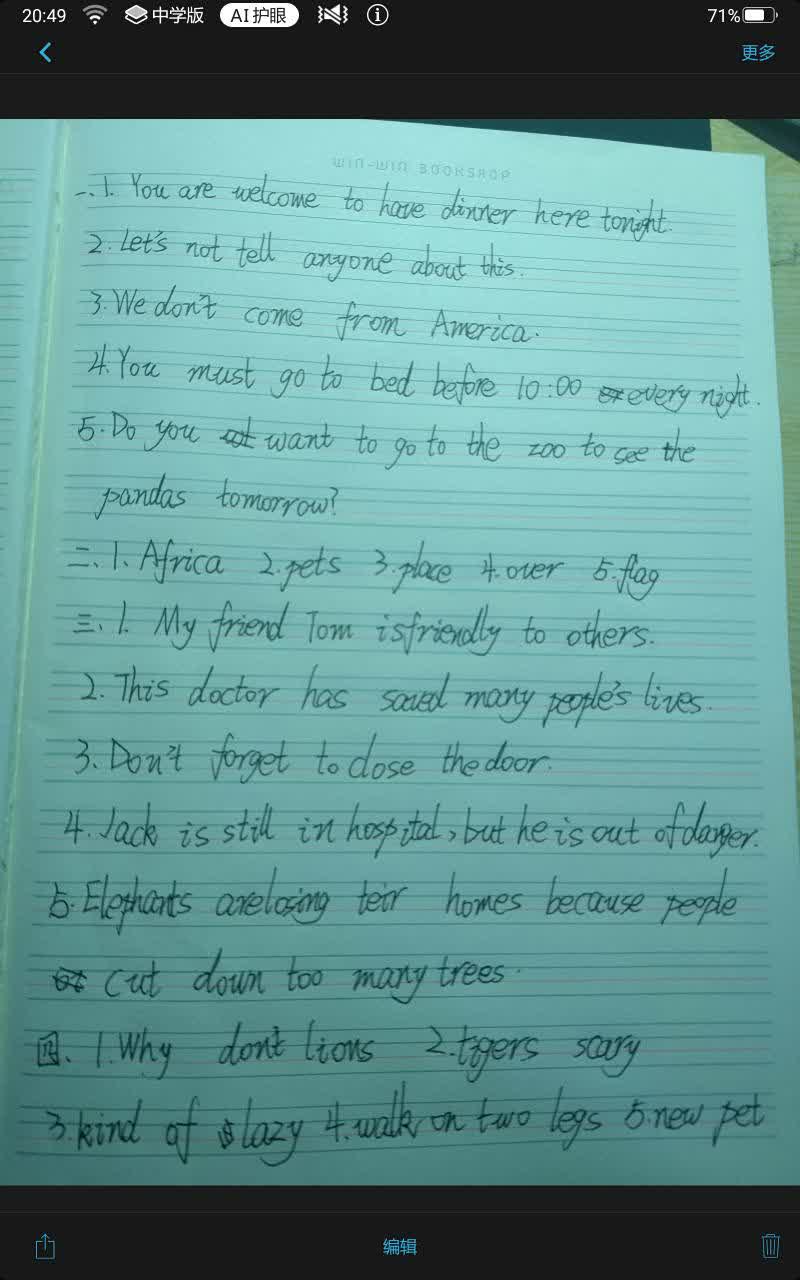 20:49 中学版 AI护眼 71%
更多
WIN-WIN BOOKSHOP
一.1. You are welcome to have dinner here tonight.
2. Let's not tell anyone about this.
3. We don't come from America.
4. You must go to bed before 10:00 every night.
5. Do you want to go to the zoo to see the
pandas tomorrow?
二、1. Africa 2. pets 3. place 4. over 5. flag
三、1. My friend Tom is friendly to others.
2. This doctor has saved many people's lives.
3. Don't forget to close the door.
4. Jack is still in hospital, but he is out of danger.
5. Elephants are losing teir homes because people
cut down too many trees.
四、1. Why don't lions 2. tigers scary
3. kind of lazy 4. walk on two legs 5. new pet
编辑